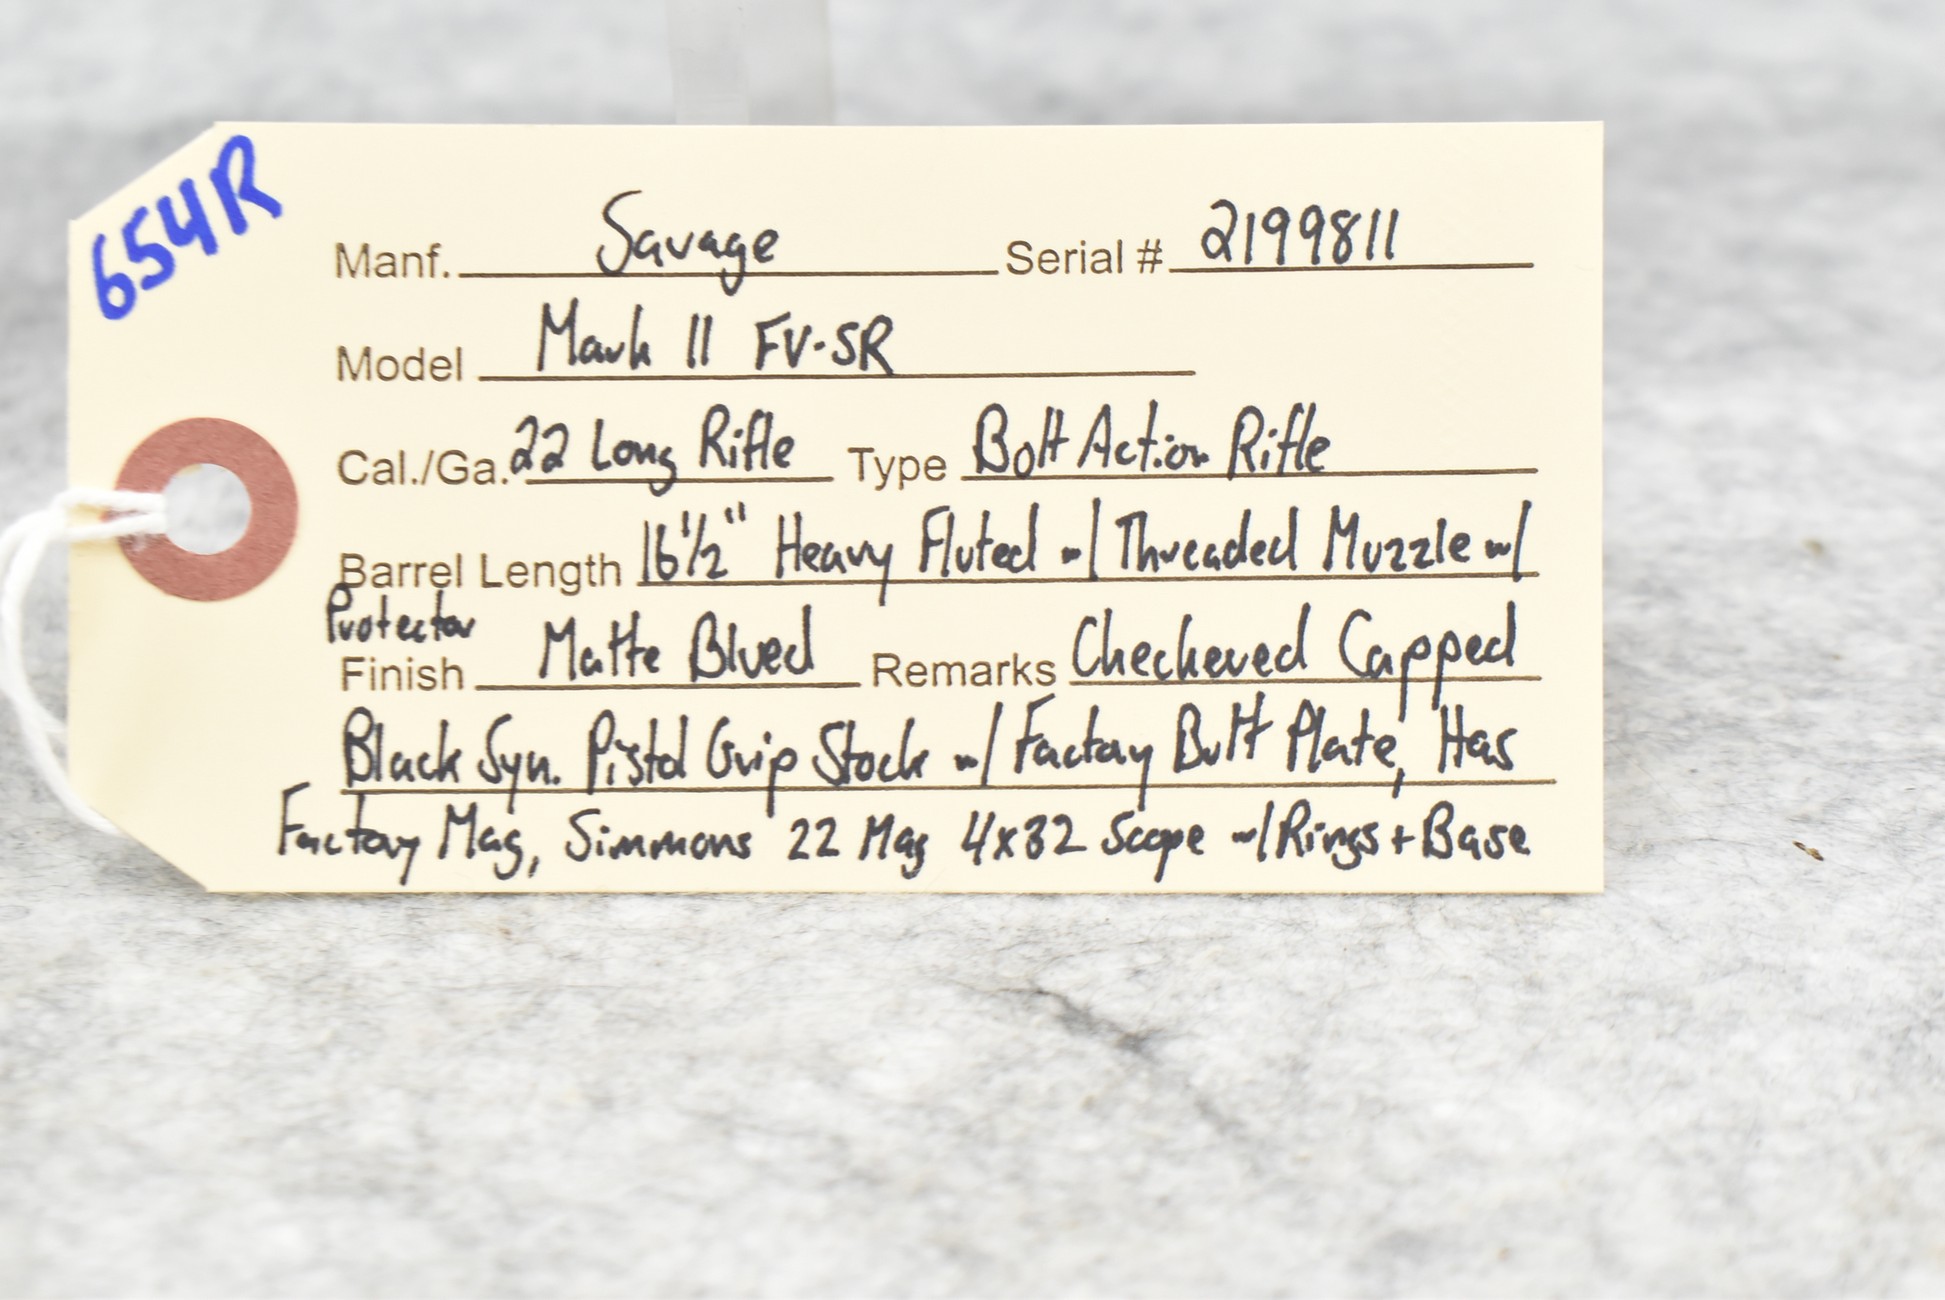 654R
Manf. Savage Serial # 2199811
Model Mark II FV-SR
Cal./Ga. 22 Long Rifle Type Bolt Action Rifle
Barrel Length 16 1/2" Heavy Fluted w/ Threaded Muzzle w/
Protector
Finish Matte Blued Remarks Checkered Capped
Black Syn. Pistol Grip Stock w/ Factory Butt Plate, Has
Factory Mag, Simmons 22 Mag 4x32 Scope w/ Rings + Base